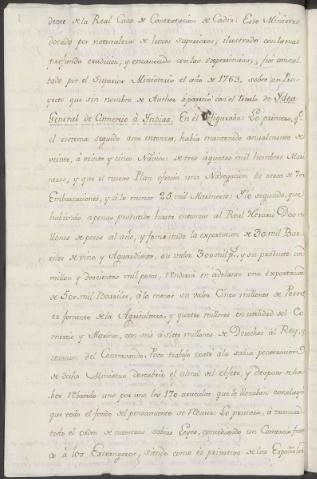 dente de la Real Casa de Contratacion de Cadiz: Este Ministro
dotado por naturaleza de luces superiores, ilustrado con la mas
profunda erudicion, y encanecido con las experiencias, fue consul-
tado por el Superior Ministerio el año de 1763, sobre un Pro-
yecto que sin nombre de Author aparecio con el titulo de Ydea
General de Comercio à Yndias. En el figuraba: Lo primero, qe.
el sistema seguido ante entonces, havia mantenido anualmente de
veinte, à veinte y cinco Navios de tres à quatro mil hombres Mari-
neros, y que el nuevo Plan ofrecia una Navegacion de
Embarcaciones, y à lo menos 25 mil Marineros: Lo segundo, que
habiendo apenas producido hasta entonces al Real Herario Dos mi-
llones de pesos al año, y fomentado la exportacion de 30 mil Bar-
riles de vino y Aguardiente, su valor 300 mil ps., y su producto un
millon y doscientos mil pesos, vendria en adelante una exportacion
de 500 mil Barriles, à lo menos su valor Cinco millones de Pesos
en fomento de la Agricultura, y quatro millones en utilidad del Co-
mercio y Marina, con seis à siete millones de Derechos al Rey, y
extension del Contrabando. Poco trabajo costó à la sabia penetracion
de dicho Ministro descubrir el alma del objeto, y despues de ha-
ber rebatido uno por uno los 170 articulos que le llenaban concluye
que todo el fondo del pensamiento se reducia: Lo primero, à trastornar
todo el orden de nuestras sabias Leyes, concediendo un Comercio fran-
co à los Extrangeros, siendo como es privativo de los Españoles